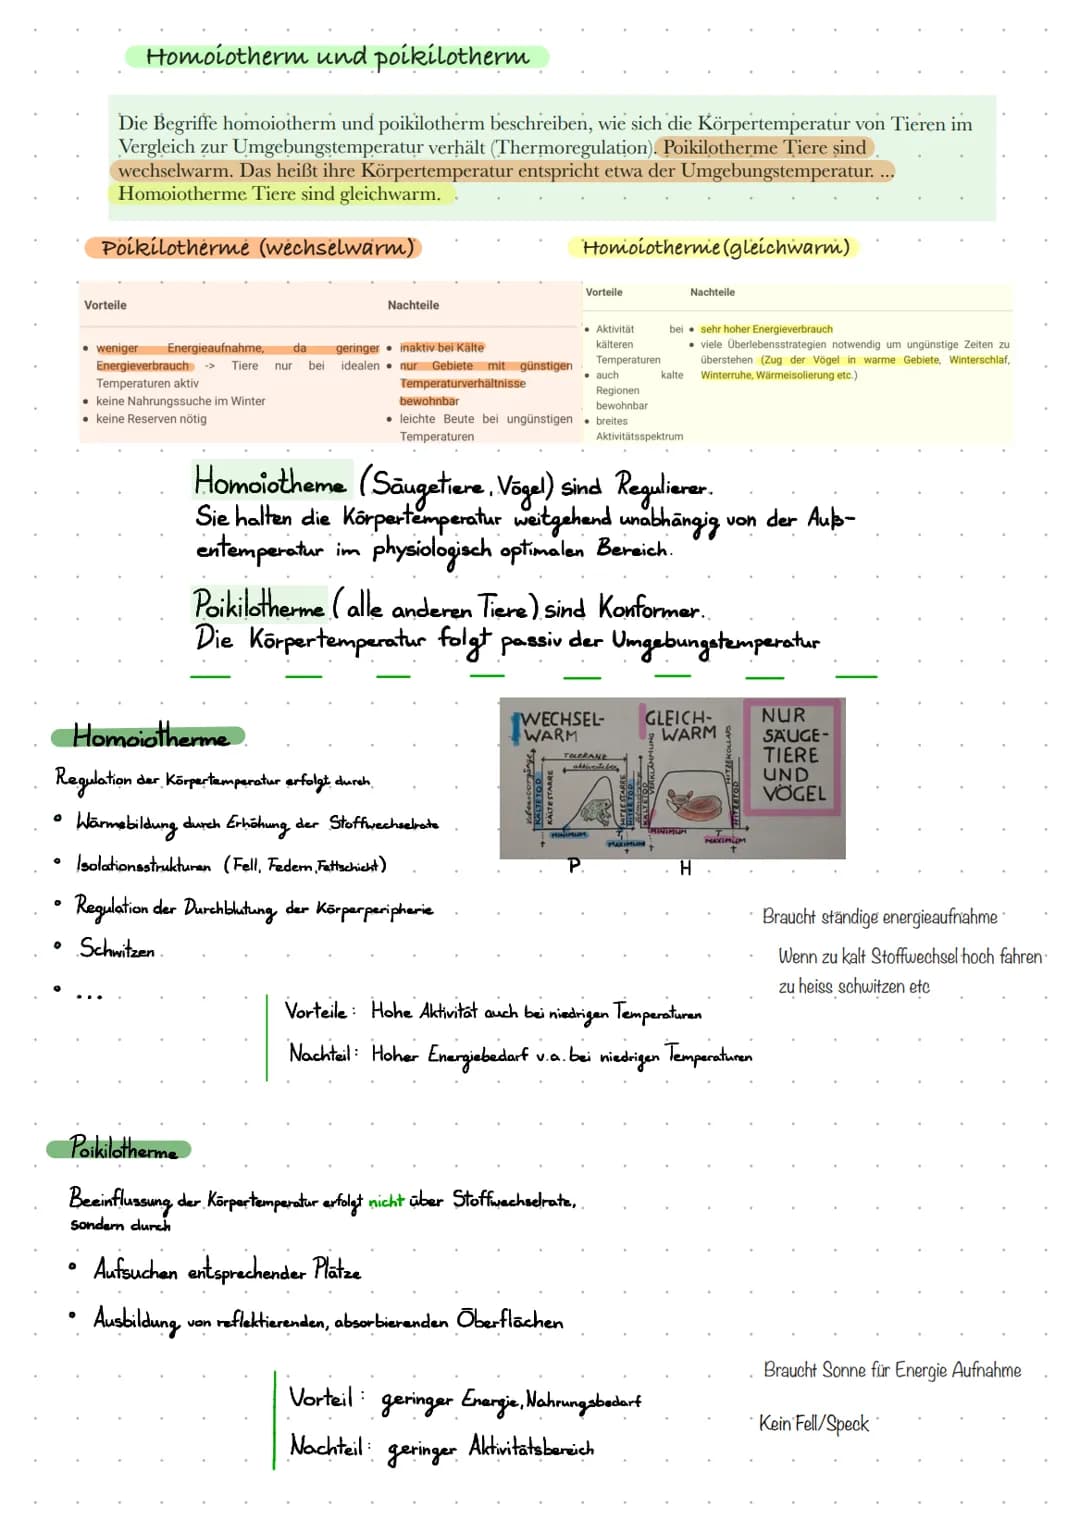 Homoiotherm und poikilotherm
Die Begriffe homoiotherm und poikilotherm beschreiben, wie sich die Körpertemperatur von Tieren im
Vergleich zur Umgebungstemperatur verhält (Thermoregulation). Poikilotherme Tiere sind
wechselwarm. Das heißt ihre Körpertemperatur entspricht etwa der Umgebungstemperatur. ...
Homoiotherme Tiere sind gleichwarm.
Poikilotherme (wechselwarm)
Vorteile
• weniger Energieaufnahme, da geringer
Energieverbrauch -> Tiere nur bei idealen
Temperaturen aktiv
• keine Nahrungssuche im Winter
• keine Reserven nötig
Nachteile
• inaktiv bei Kälte
• nur Gebiete mit günstigen
Temperaturverhältnisse
bewohnbar
• leichte Beute bei ungünstigen
Temperaturen
Homoiotherme (gleichwarm)
Vorteile
• Aktivität bei
kälteren
Temperaturen
• auch kalte
Regionen
bewohnbar
• breites
Aktivitätsspektrum
Nachteile
• sehr hoher Energieverbrauch
• viele Überlebensstrategien notwendig um ungünstige Zeiten zu
überstehen (Zug der Vögel in warme Gebiete, Winterschlaf,
Winterruhe, Wärmeisolierung etc.)
Homoiotheme (Säugetiere, Vögel) sind Regulierer.
Sie halten die Körpertemperatur weitgehend unabhängig von der Auß-
entemperatur im physiologisch optimalen Bereich.
Poikilotherme (alle anderen Tiere) sind Konformer.
Die Körpertemperatur folgt passiv der Umgebungstemperatur
Homoiotherme
Regulation der Körpertemperatur erfolgt durch
• Wärmebildung durch Erhöhung der Stoffwechselrate
• Isolationsstrukturen (Fell, Federn, Fettschicht)
• Regulation der Durchblutung der Körperperipherie
• Schwitzen
• ...
WECHSEL-
WARM
TOLERANZ
KÄLTETOD
KÄLTESTARRE
HITZESTARRE
HITZETOD
MINIMUM
MAXIMUM
GLEICH-
WARM
KÄLTETOD
VERKLAMMUNG
HITZEKOLLAPS
HITZETOD
MINIMUM
MAXIMUM
NUR
SÄUGE-
TIERE
UND
VÖGEL
P
H
Braucht ständige energieaufnahme
Wenn zu kalt Stoffwechsel hoch fahren
zu heiss schwitzen etc
Vorteile: Hohe Aktivität auch bei niedrigen Temperaturen
Nachteil: Hoher Energiebedarf v.a. bei niedrigen Temperaturen
Poikilotherme
Beeinflussung der Körpertemperatur erfolgt nicht über Stoffwechselrate,
sondern durch
• Aufsuchen entsprechender Plätze
• Ausbildung von reflektierenden, absorbierenden Oberflächen
Braucht Sonne für Energie Aufnahme
Kein Fell/Speck
Vorteil: geringer Energie, Nahrungsbedarf
Nachteil: geringer Aktivitätsbereich